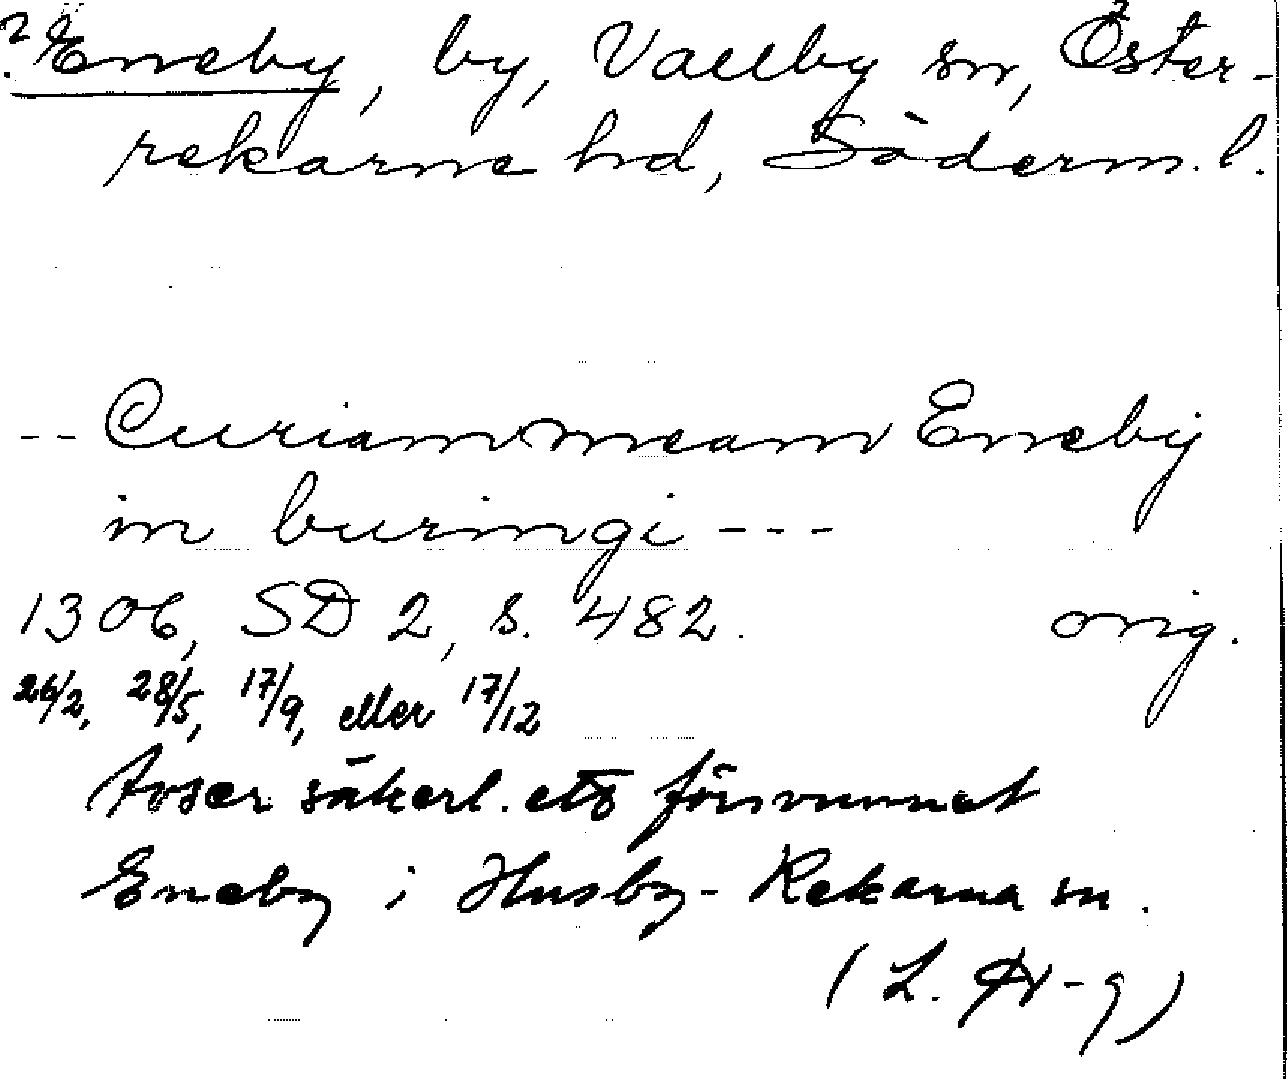 ? Eneby, by, Vallby sn, Öster-
rekarne hd, Söderm. l.
-- Curiam meam Eneby
in buringi ---
1306, SD 2, s. 482. orig.
26/2, 28/5, 17/9, eller 17/12
Avser säkerl. ett försvunnet
Eneby i Husby-Rekarna sn.
(L. H-g)